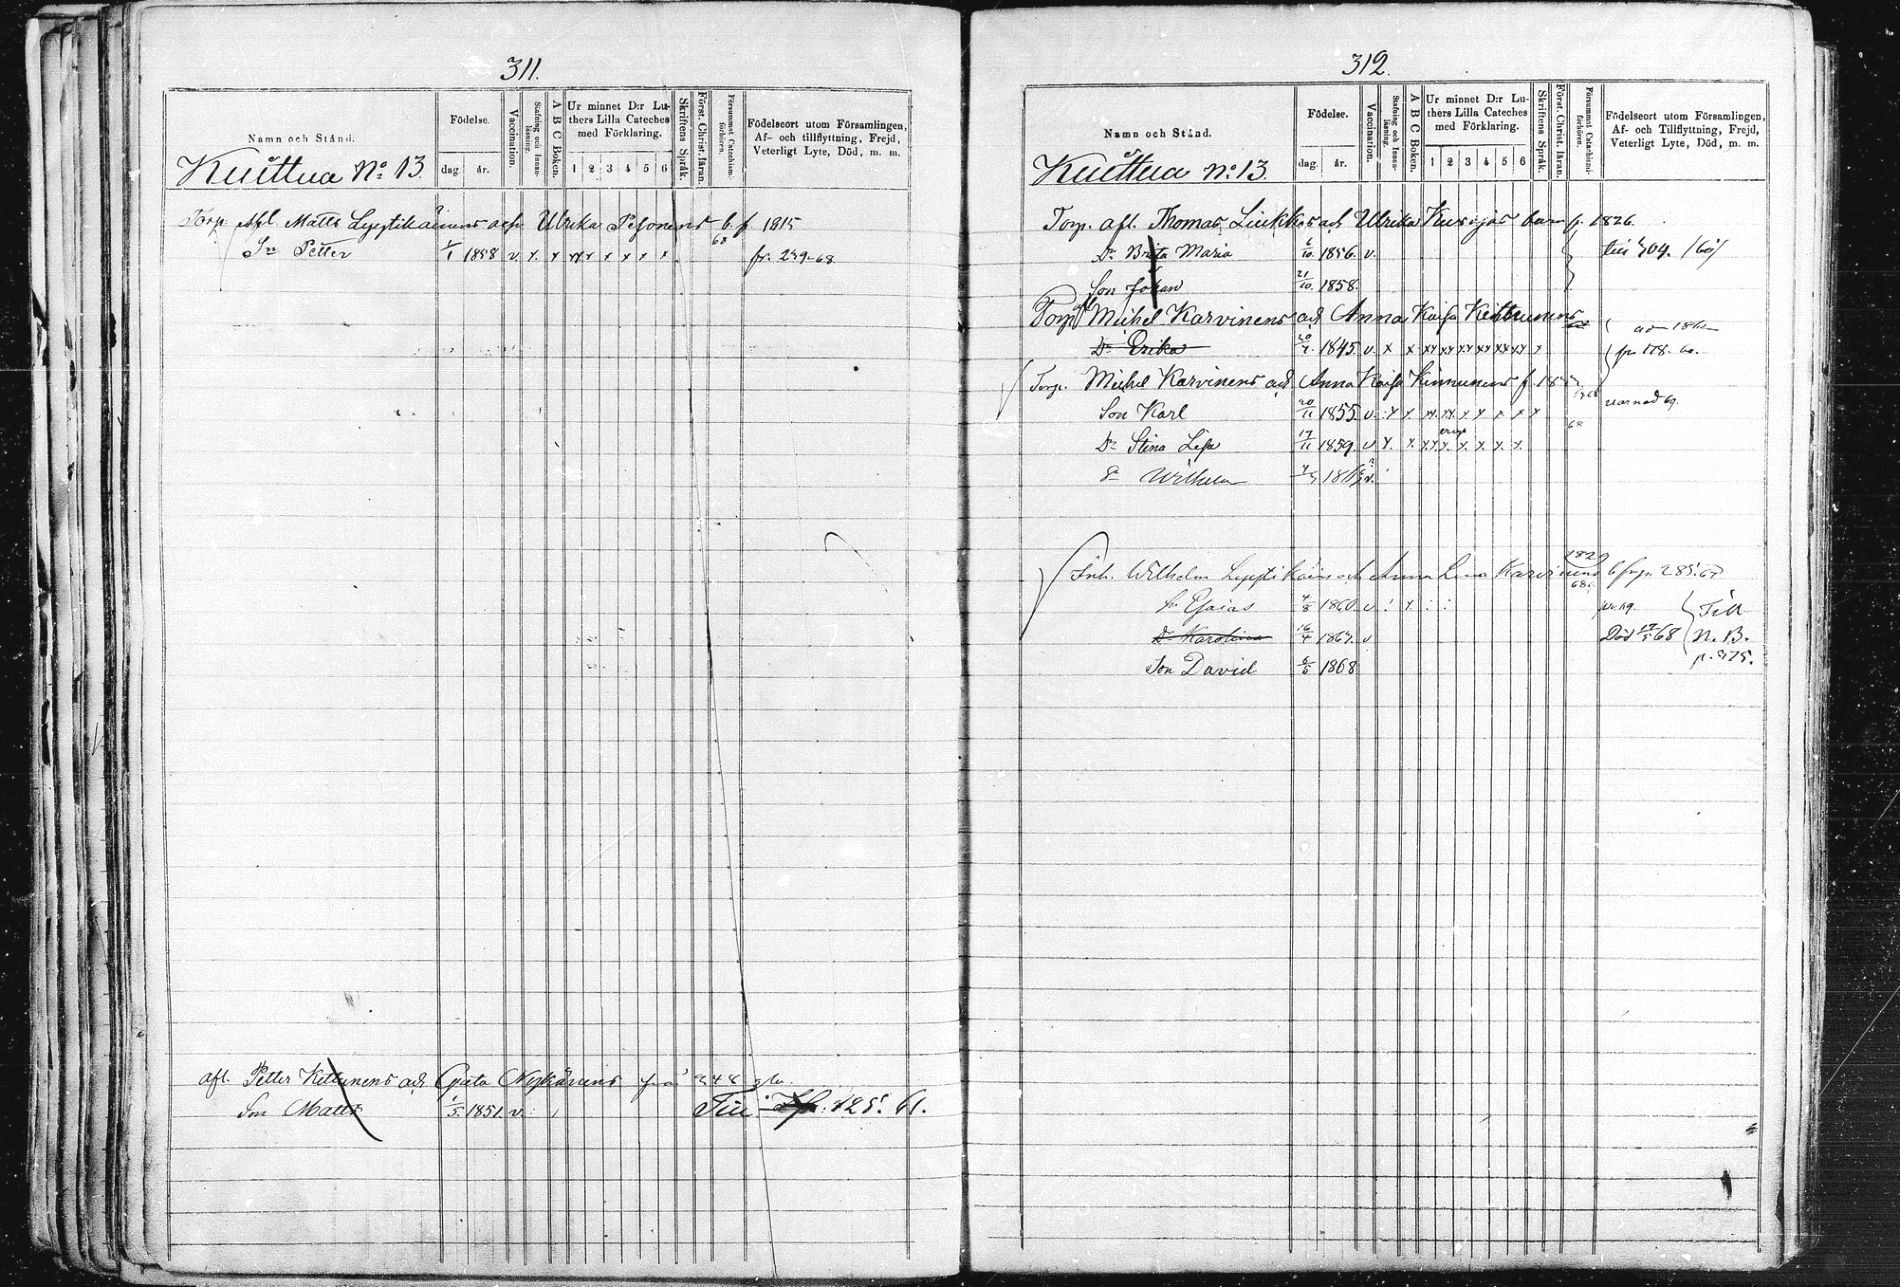 311.
Namn och Stånd.
Födelse.
dag. år.
Vaccination.
Stafning och Innan-läsning.
A B C Boken.
Ur minnet D:r Lu-
thers Lilla Cateches
med Förklaring.
1 2 3 4 5 6
Skriftens Språk.
Först. Christ. läran.
Försummat Catechismi-förhören.
Födelseort utom Församlingen,
Af- och tillflyttning, Frejd,
Veterligt Lyte, Död, m. m.
Kuittua No 13.
Torp. Afl. Matts Leppikäinens och Ulrika Pesonens b. f. 1815
Sn Petter 1/1 1858 v. x. x xx x x x x x 68 fr. 239-68
afl. Petter Kettunens och Greta Nykänens från 348
Son Matts 1/5 1851. v. Till 125. 61.
312.
Namn och Stånd.
Födelse.
dag. år.
Vaccination.
Stafning och Innan-läsning.
A B C Boken.
Ur minnet D:r Lu-
thers Lilla Cateches
med Förklaring.
1 2 3 4 5 6
Skriftens Språk.
Först. Christ. läran.
Försummat Catechismi-förhören.
Födelseort utom Församlingen,
Af- och Tillflyttning, Frejd,
Veterligt Lyte, Död, m. m.
Kuittua No 13.
Torp. afl. Thomas Liukkos och Ulrika barn f. 1826.
Dr Brita Maria 6/10 1856. v. till 304. /60/
Son Johan 21/10. 1858.
Torp. afl Michel Karvinens och Anna Kaisa
Dr Erika 1845. v. x x xx xx xx xx xx xx x fr 178. 60.
Torp. Michel Karvinens och Anna Kaisa Kinnunens f.
Son Karl 20/11 1855. v. x x. xx. xx. x x x x x
Dr Stina Lisa 19/11 1859. v x. x. xx x. x. x. x. x. 68
Wilhelm
Inh. Wilhelm Leppikäin och Anna Lena Karvinens 1829 68. 285. 67
Sn Esaias 4/8 1860. v : x. : : Till
Dr Karolina 16/4 1867. v Död 68 N. 13.
Son David 6/5 1868 p. 375.